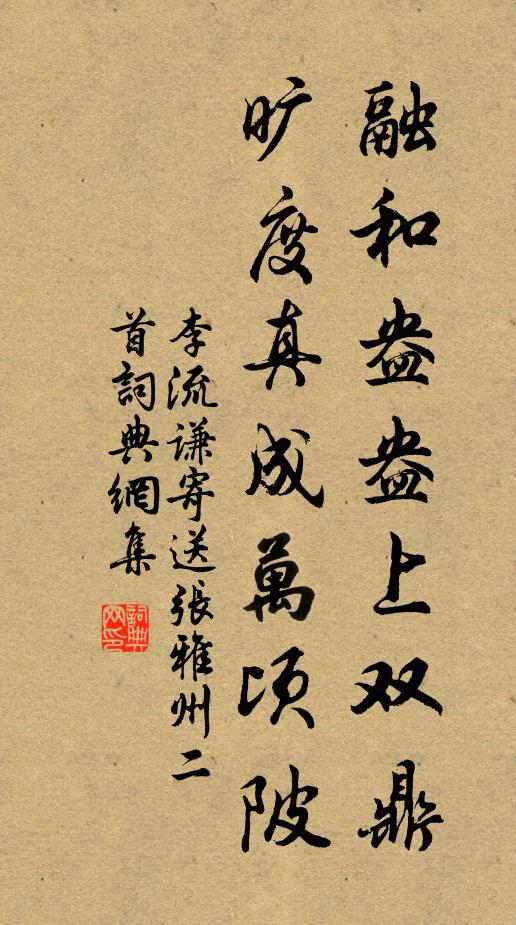 融和盎盎上双鼎
旷度真成萬顷陂
李流謙寄送張雅州二
首詞典網集
詞典
网印